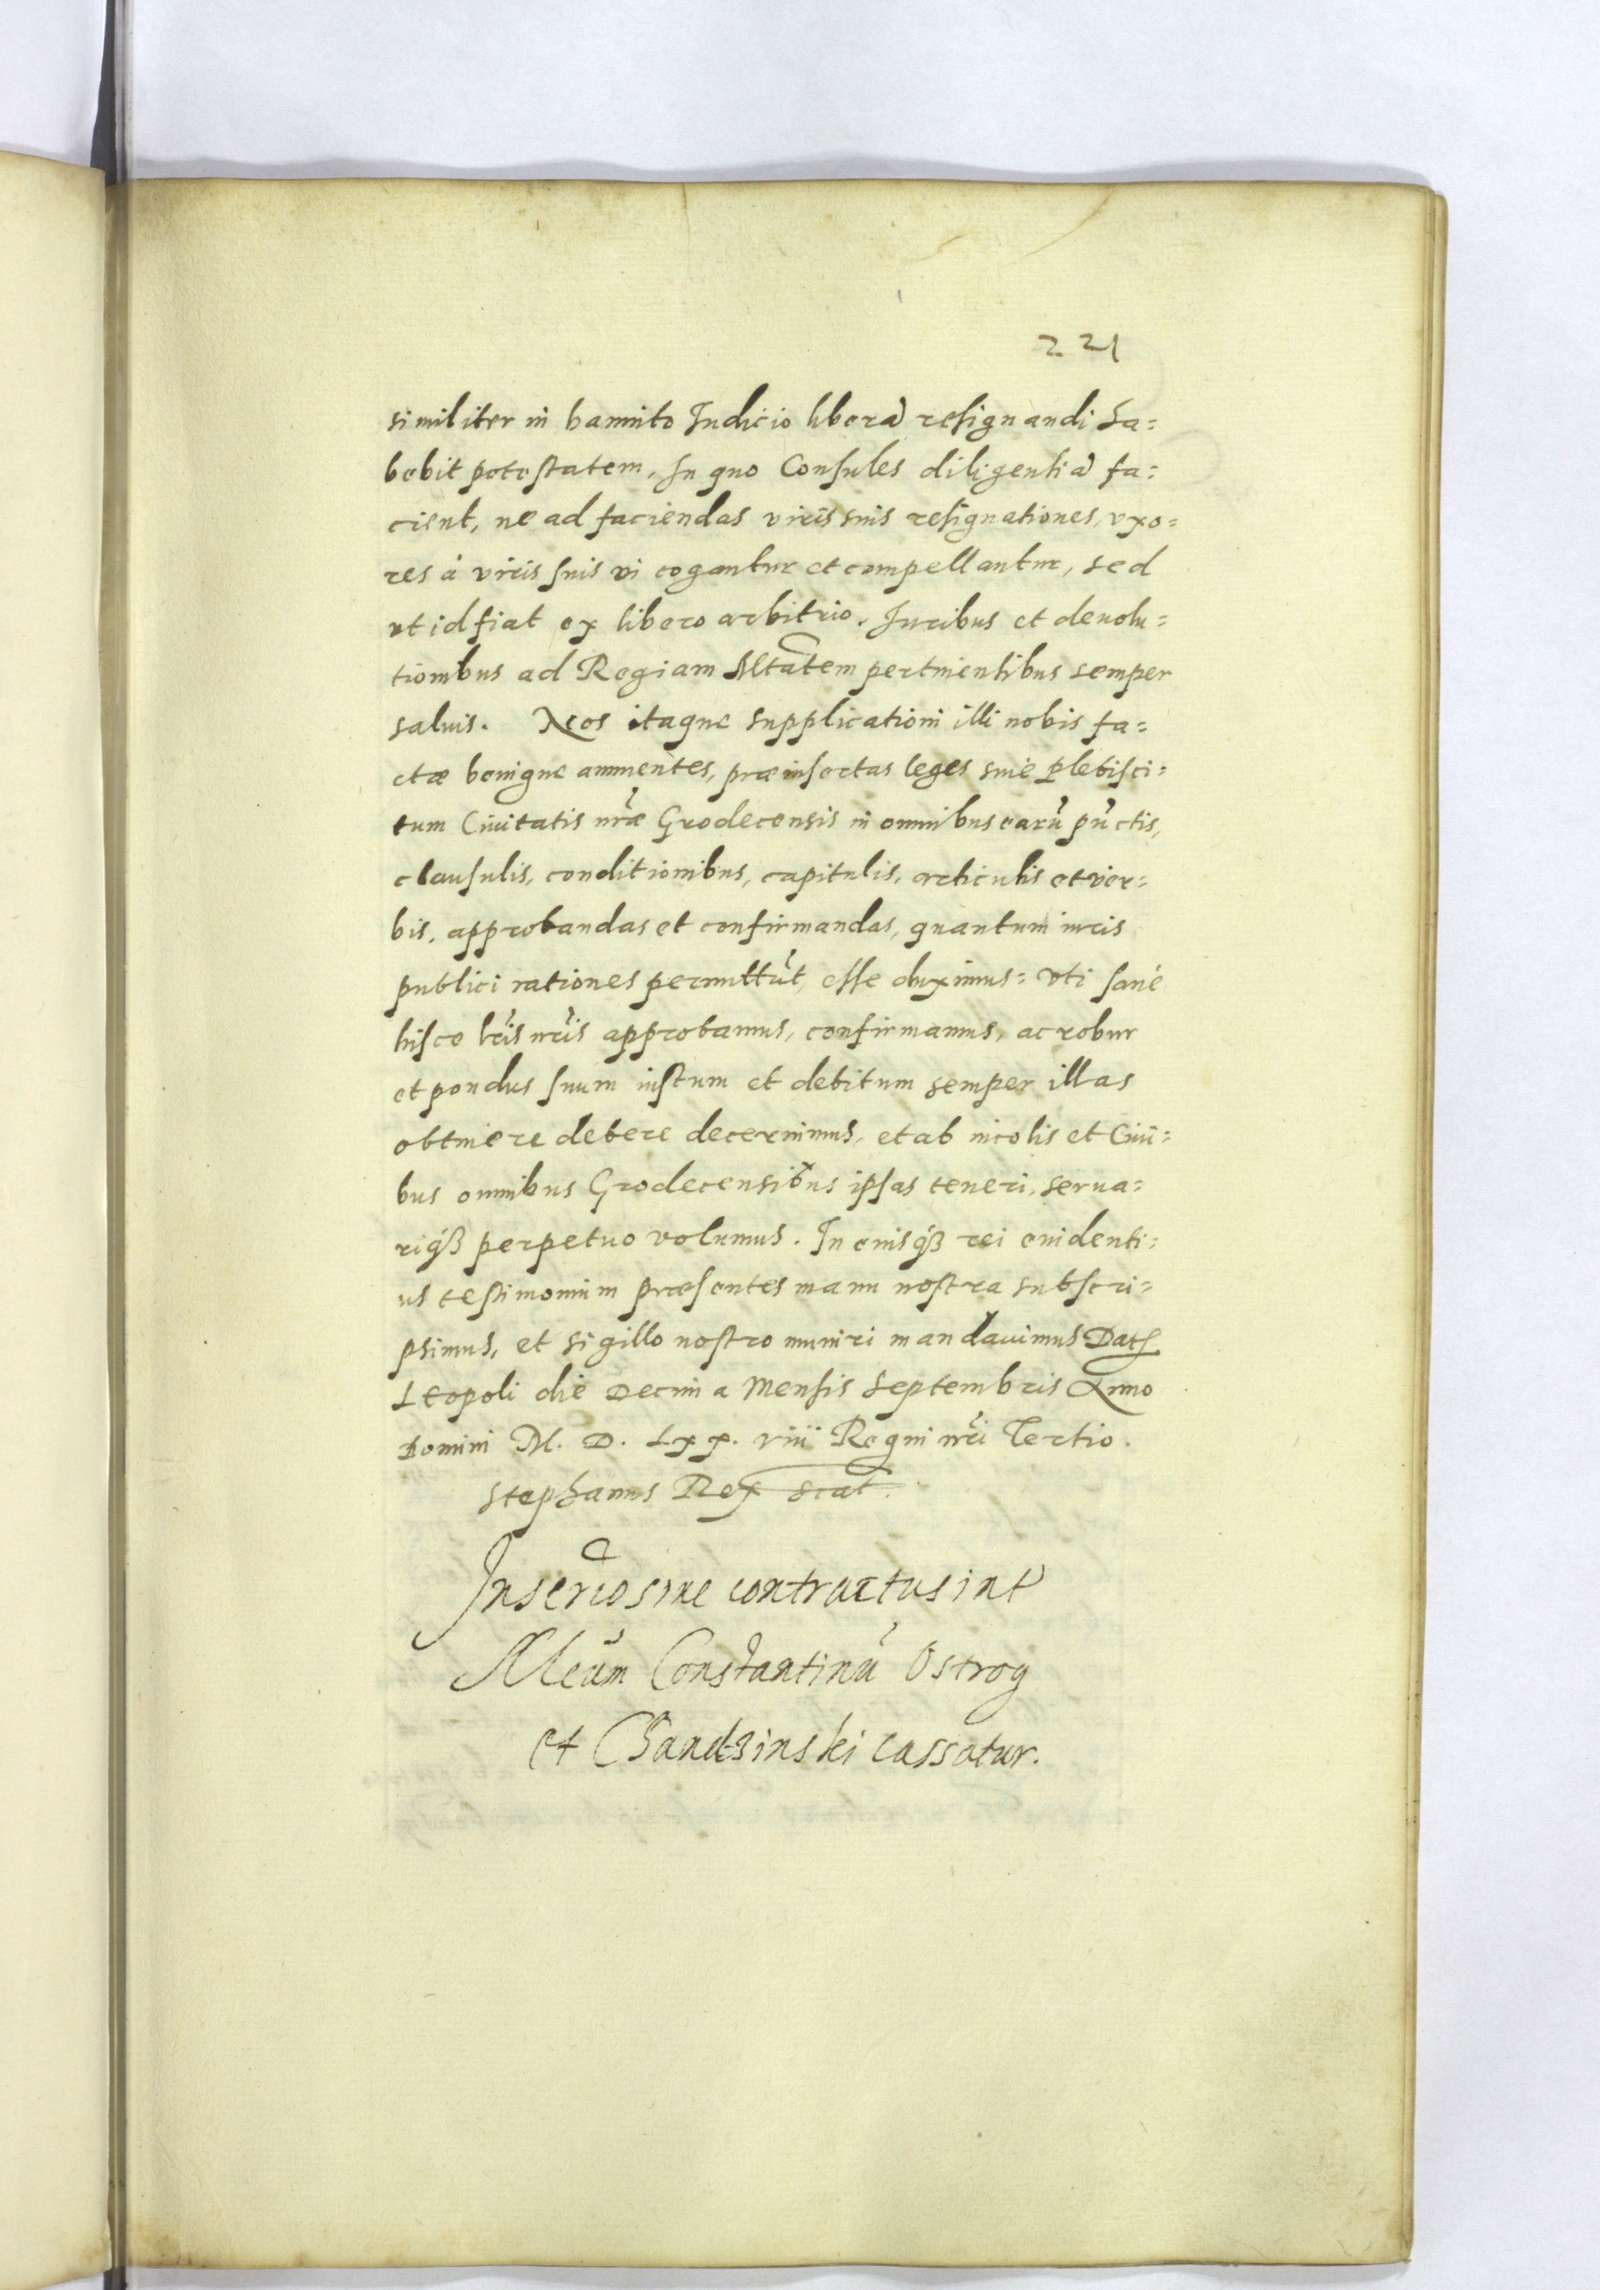 221
similiter in bannito Iudicio liberā resignandi ha=
bebit potestatem, In quo Consules diligentiā fa=
cient, ne ad faciendas viris suis resignationes, vxo=
res à viris suis vi cogantur et compellantur, sed
vt id fiat ex libero arbitrio. Iuribus et deuolu=
tionibus ad Regiam Mtatem pertinentibus semper
saluis. Nos itaque supplicationi illi nobis fa=
ctæ benigne annuentes, præinsertas leges siue plebisci=
tum Ciuitatis nr̃æ Grodecensis in omnibus earū pūctis,
clausulis, conditionibus, capitulis, articulis et ver=
bis, approbandas et confirmandas, quantum iuris
publici rationes permittūt, esse duximus: vti sanè
hisce lr̃is nr̃is approbamus, confirmamus, ac robur
et pondus suum iustum et debitum semper illas
obtinere debere decernimus, et ab incolis et Ciui=
bus omnibus Grodecensibus ipsas teneri, serua=
riq́ȝ perpetuo volumus. In cuiusq́ȝ rei euidenti=
us testimonium præsentes manu nostra subscri=
psimus, et sigillo nostro muniri mandauimus Dat
Leopoli die Decima Mensis Septembris Anno
Domini M. D. Lxx. viii Regni nr̃i Tertio.
Stephanus Rex scat.
Inserc̃o siue contractus int
Mcūm Constantinū Ostrog
et Chandzinski cassatur.